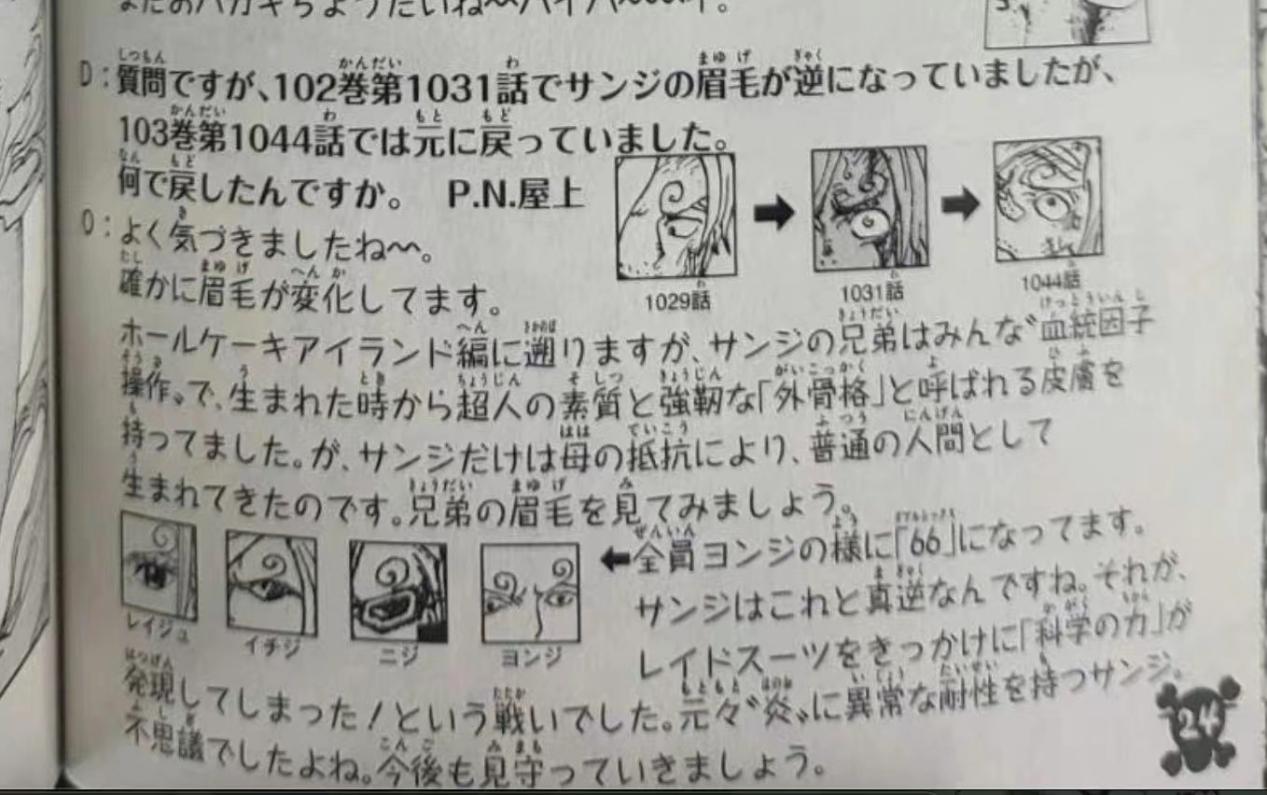 またおハガキちょうだいね〜
D：質問ですが、102巻第1031話でサンジの眉毛が逆になっていましたが、
103巻第1044話では元に戻っていました。
何で戻したんですか。 P.N.屋上
1029話 1031話 1044話
O：よく気づきましたね〜。
確かに眉毛が変化してます。
ホールケーキアイランド編に遡りますが、サンジの兄弟はみんな〝血統因子
操作〟で、生まれた時から超人の素質と強靭な「外骨格」と呼ばれる皮膚を
持ってました。が、サンジだけは母の抵抗により、普通の人間として
生まれてきたのです。兄弟の眉毛を見てみましょう。
レイジュ イチジ ニジ ヨンジ
←全員ヨンジの様に「66」になってます。
サンジはこれと真逆なんですね。それが、
レイドスーツをきっかけに「科学の力」が
発現してしまった!という戦いでした。元々〝炎〟に異常な耐性を持つサンジ。
不思議でしたよね。今後も見守っていきましょう。
24